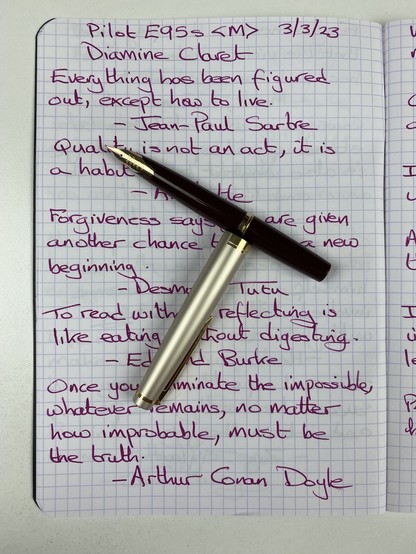 Pilot E95s <M> 3/3/23
Diamine Claret
Everything has been figured
out, except how to live.
- Jean-Paul Sartre
Quality is not an act, it is
a habit
- A
Forgiveness says are given
another chance t a new
beginning.
- Desmo Tutu
To read with reflecting is
like eating hout digesting.
- Ed d Burke
Once you iminate the impossible,
whatever remains, no matter
how improbable, must be
the truth.
- Arthur Conan Doyle